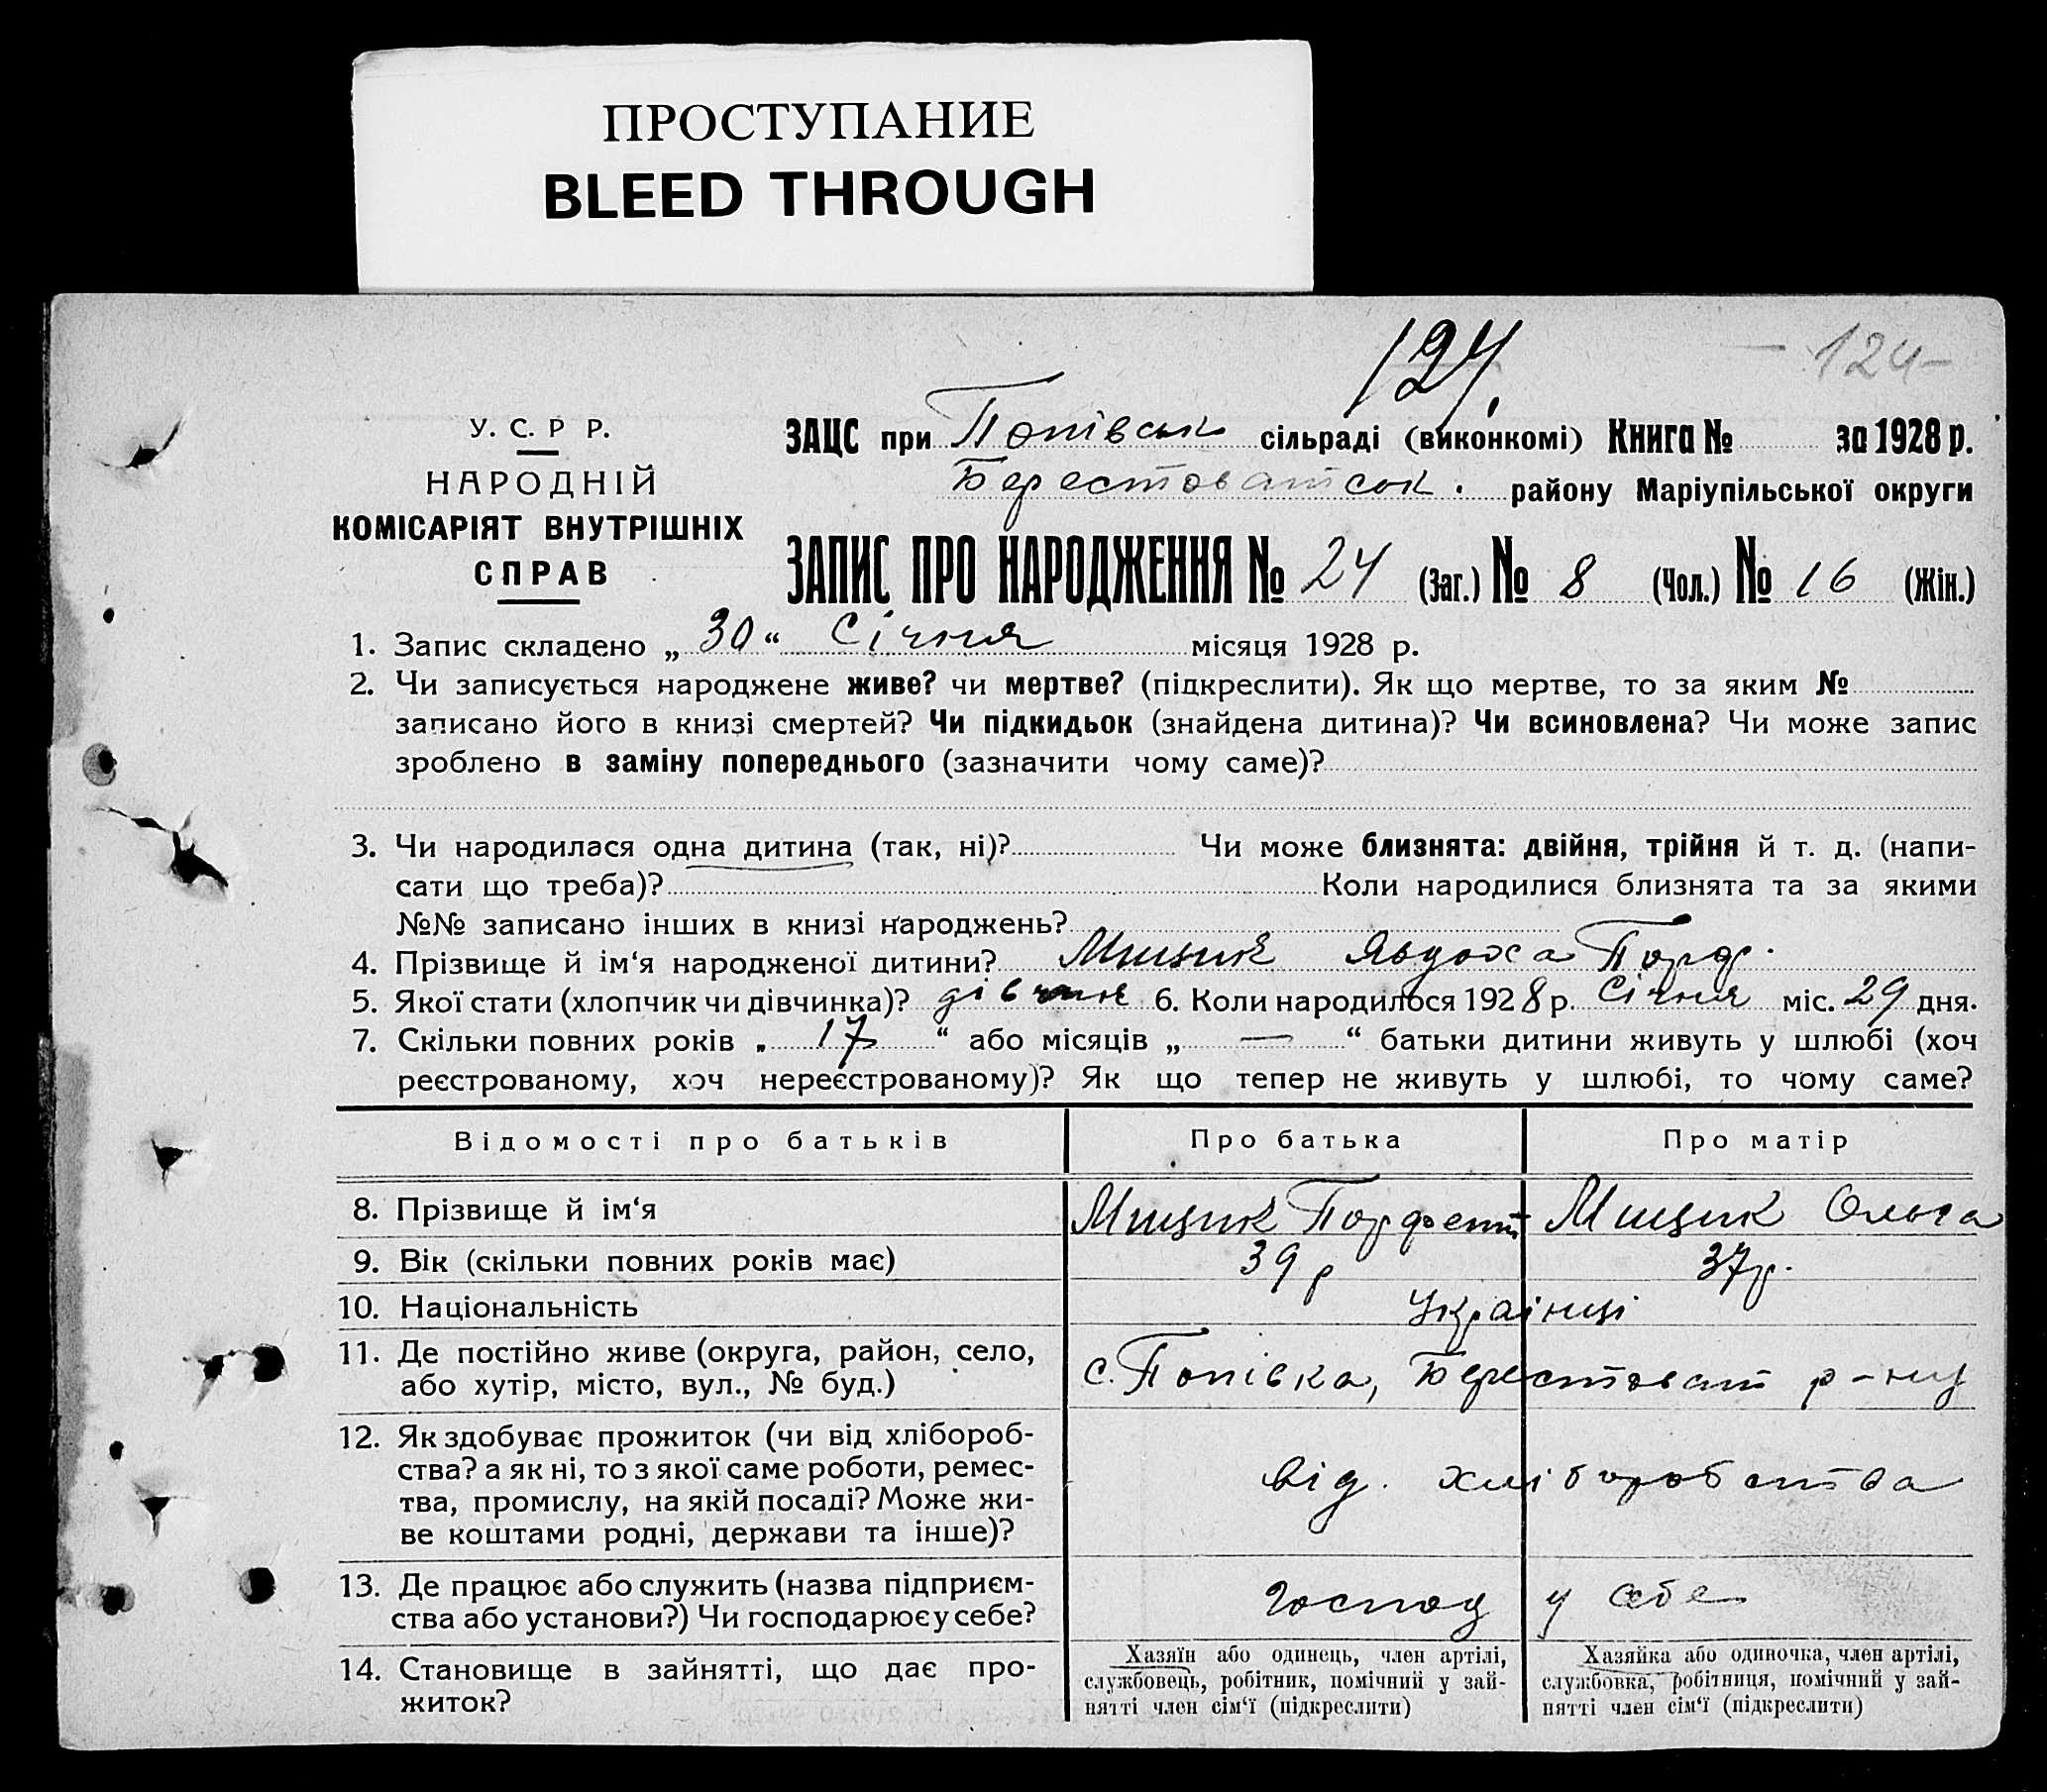 ПРОСТУПАНИЕ
BLEED THROUGH
124.
124
У. С. Р Р.
НАРОДНІЙ
КОМІСАРІЯТ ВНУТРІШНІХ
СПРАВ
ЗАЦС при Попівськ сільраді (виконкомі) Книга № за 1928 р.
Берестоватськ. району Маріупільської округи
ЗАПИС ПРО НАРОДЖЕННЯ № 24 (Заг.) № 8 (Чол.) № 16 (Жін.)
1. Запис складено „ 30 “ Січня місяця 1928 р.
2. Чи записується народжене живе? чи мертве? (підкреслити). Як що мертве, то за яким №
записано його в книзі смертей? Чи підкидьок (знайдена дитина)? Чи всиновлена? Чи може запис
зроблено в заміну попереднього (зазначити чому саме)?
3. Чи народилася одна дитина (так, ні)? Чи може близнята: двійня, трійня й т. д. (напи-
сати що треба)? Коли народилися близнята та за якими
№№ записано інших в книзі народжень?
4. Прізвище й ім‘я народженої дитини? Мицик Явдоха Порф.
5. Якої стати (хлопчик чи дівчинка)? 6. Коли народилося 1928 р. Січня міс. 29 дня.
7. Скільки повних років „ 17 “ або місяців „ — “ батьки дитини живуть у шлюбі (хоч
реєстрованому, хоч нереєстрованому)? Як що тепер не живуть у шлюбі, то чому саме?
Відомості про батьків Про батька Про матір
8. Прізвище й ім‘я Мицик Мицик Ольга
9. Вік (скільки повних років має) 39 р 37 р.
10. Національність Українці
11. Де постійно живе (округа, район, село,
або хутір, місто, вул., № буд.) с. Попівка, Берестоват р-ну
12. Як здобуває прожиток (чи від хлібороб-
ства? а як ні, то з якої саме роботи, ремес-
тва, промислу, на якій посаді? Може жи-
ве коштами родні, держави та інше)? від. хліборобства
13. Де працює або служить (назва підприєм-
ства або установи?) Чи господарює у себе? господ у себе
14. Становище в зайнятті, що дає про-
житок?
Хазяїн або одинець, член артілі,
службовець, робітник, помічний у зай-
нятті член сім‘ї (підкреслити)
Хазяйка або одиночка, член артілі,
службовка, робітниця, помічний у зай-
нятті член сім‘ї (підкреслити)